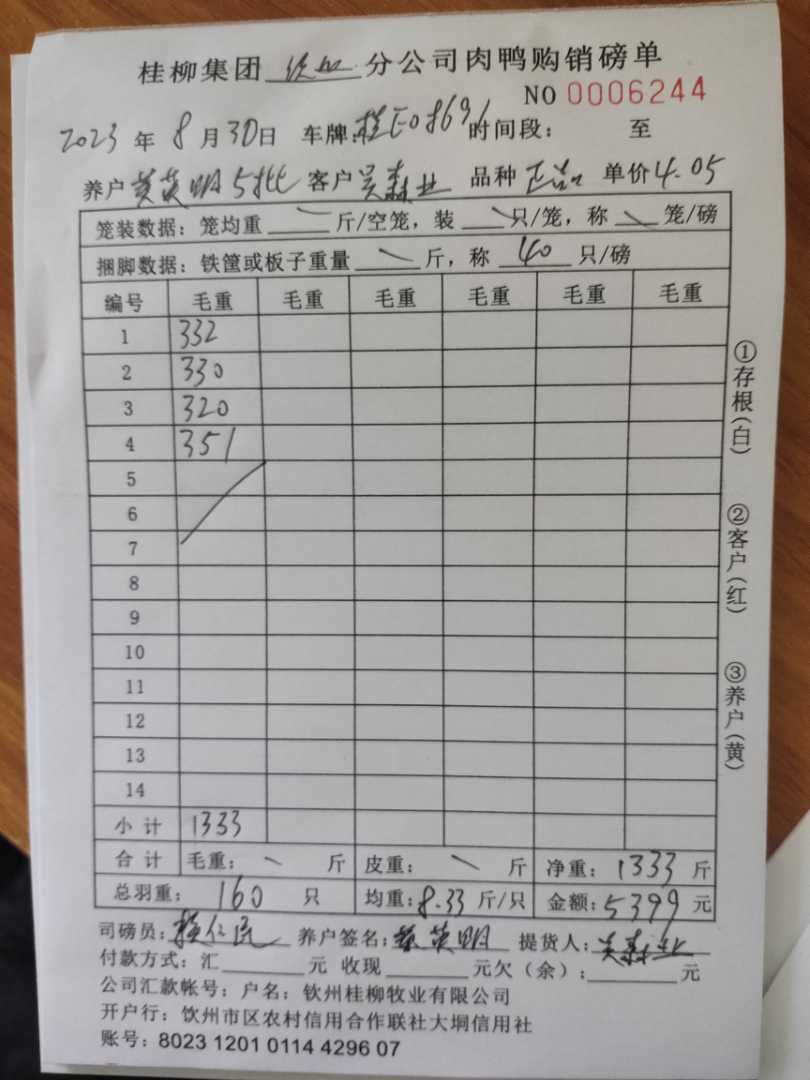 桂柳集团 钦州 分公司肉鸭购销磅单
NO 0006244
2023 年 8 月 30日 车牌: 桂E08696 时间段: 至
养户 黄英明 5批 客户 吴森业 品种 正品 单价 4.05
笼装数据: 笼均重 斤/空笼, 装 只/笼, 称 笼/磅
捆脚数据: 铁筐或板子重量 斤, 称 40 只/磅
编号 毛重 毛重 毛重 毛重 毛重 毛重
1 332
2 330
3 320
4 351
5
6
7
8
9
10
11
12
13
14
小计 1333
合计 毛重: 斤 皮重: 斤 净重: 1333 斤
总羽重: 160 只 均重: 8.33 斤/只 金额: 5399 元
司磅员: 养户签名: 黄英明 提货人: 吴森业
付款方式: 汇 元 收现 元欠(余): 元
公司汇款帐号: 户名: 钦州桂柳牧业有限公司
开户行: 饮州市区农村信用合作联社大垌信用社
账号: 8023 1201 0114 4296 07
①存根(白)
②客户(红)
③养户(黄)